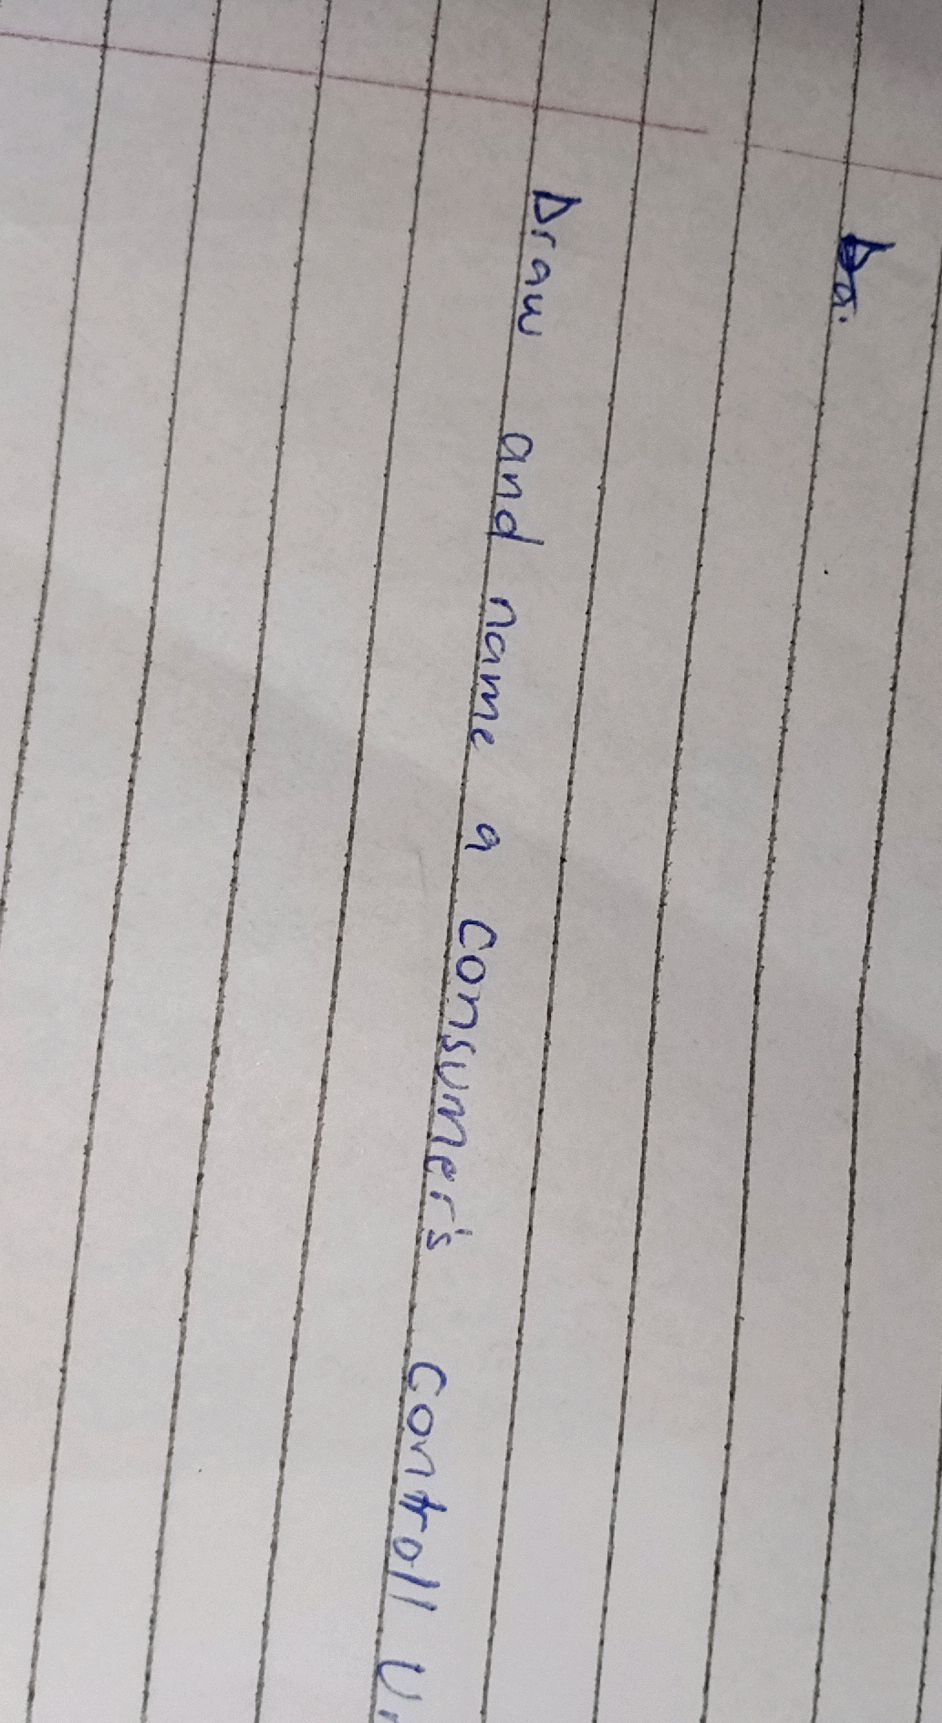 Draw and name a consumer's controll